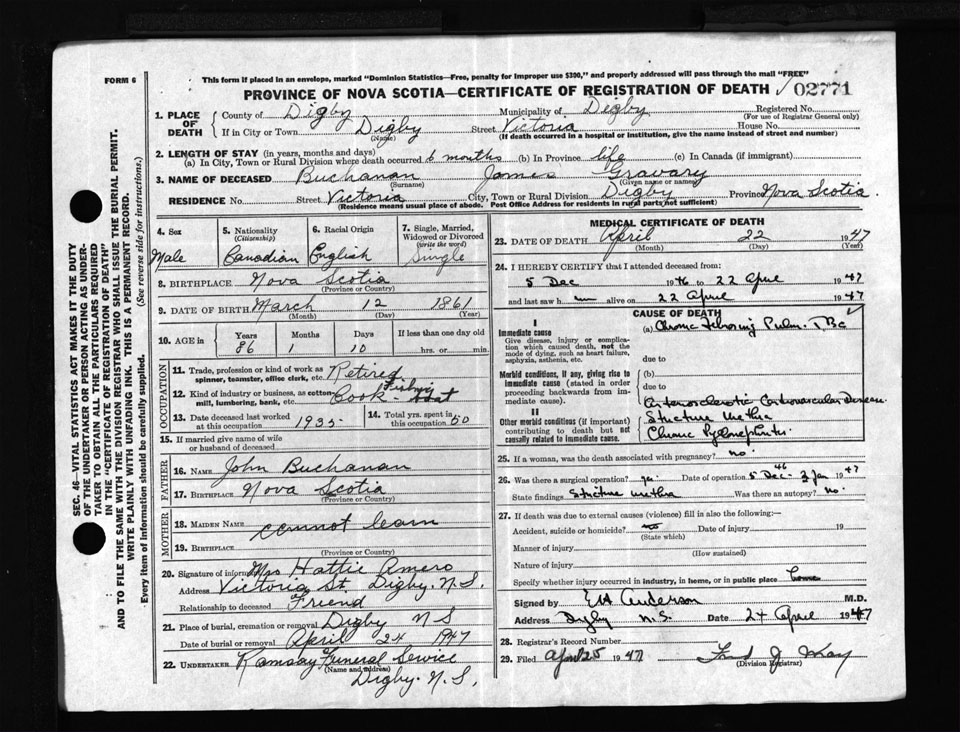 FORM 6
This form if placed in an envelope, marked "Dominion Statistics—Free, penalty for improper use $300," and properly addressed will pass through the mail "FREE"
PROVINCE OF NOVA SCOTIA—CERTIFICATE OF REGISTRATION OF DEATH 02771
1. PLACE OF DEATH
County of Digby Municipality of Digby Registered No.
(For use of Registrar General only)
If in City or Town Digby Street Victoria House No.
(Name) (If death occurred in a hospital or institution, give the name instead of street and number)
2. LENGTH OF STAY (in years, months and days)
(a) In City, Town or Rural Division where death occurred 6 months (b) In Province life (c) In Canada (if immigrant)
3. NAME OF DECEASED Buchanan James
(Surname) (Given name or names)
RESIDENCE No. Street Victoria City, Town or Rural Division Digby Province Nova Scotia.
(Residence means usual place of abode. Post Office Address for residents in rural parts not sufficient)
4. Sex
Male
5. Nationality
(Citizenship)
Canadian
6. Racial Origin
English
7. Single, Married, Widowed or Divorced
(write the word)
Single
8. BIRTHPLACE Nova Scotia
(Province or Country)
9. DATE OF BIRTH March 12 1861
(Month) (Day) (Year)
10. AGE in
Years Months Days If less than one day old
86 1 10 hrs. or min.
OCCUPATION
11. Trade, profession or kind of work as
spinner, teamster, office clerk, etc. Retired
12. Kind of industry or business, as cotton-
mill, lumbering, bank, etc. Cook - Fishing Boat
13. Date deceased last worked
at this occupation 1935-
14. Total yrs. spent in
this occupation 50
15. If married give name of wife
or husband of deceased
FATHER
16. NAME John Buchanan
17. BIRTHPLACE Nova Scotia
(Province or Country)
MOTHER
18. MAIDEN NAME cannot learn
19. BIRTHPLACE
(Province or Country)
20. Signature of informant Mrs Hattie Amero
Address Victoria St. Digby. N.S.
Relationship to deceased Friend
21. Place of burial, cremation or removal Digby N S
Date of burial or removal April 24 1947
22. UNDERTAKER Ramsay Funeral Service
(Name and address)
Digby. N.S.
MEDICAL CERTIFICATE OF DEATH
23. DATE OF DEATH April 22 1947
(Month) (Day) (Year)
24. I HEREBY CERTIFY that I attended deceased from:
5 Dec 1946 to 22 April 1947
and last saw h im alive on 22 April 1947
CAUSE OF DEATH
I
Immediate cause
Give disease, injury or complication which caused death, not the mode of dying, such as heart failure, asphyxia, asthenia, etc.
(a) Chronic Pulm. TBc
due to
Morbid conditions, if any, giving rise to immediate cause (stated in order proceeding backwards from immediate cause).
(b)
due to
II
Other morbid conditions (if important) contributing to death but not causally related to immediate cause.
Stricture Urethra
Chronic Pyelonephritis
25. If a woman, was the death associated with pregnancy? no.
26. Was there a surgical operation? yes Date of operation 5 Dec 46 - 3 Jan 1947
State findings Stricture urethra Was there an autopsy? no.
27. If death was due to external causes (violence) fill in also the following:—
Accident, suicide or homicide? no Date of injury 19
(State which)
Manner of injury
(How sustained)
Nature of injury
Specify whether injury occurred in industry, in home, or in public place home
Signed by Anderson M.D.
Address Digby N.S. Date 24 April 1947
28. Registrar's Record Number
29. Filed April 25 1947
(Division Registrar)
SEC. 46—VITAL STATISTICS ACT MAKES IT THE DUTY
OF THE UNDERTAKER OR PERSON ACTING AS UNDER-
TAKER TO OBTAIN ALL THE PARTICULARS REQUIRED
IN THE "CERTIFICATE OF REGISTRATION OF DEATH"
AND TO FILE THE SAME WITH THE DIVISION REGISTRAR WHO SHALL ISSUE THE BURIAL PERMIT.
WRITE PLAINLY WITH UNFADING INK. THIS IS A PERMANENT RECORD.
Every item of information should be carefully supplied. (See reverse side for instructions.)